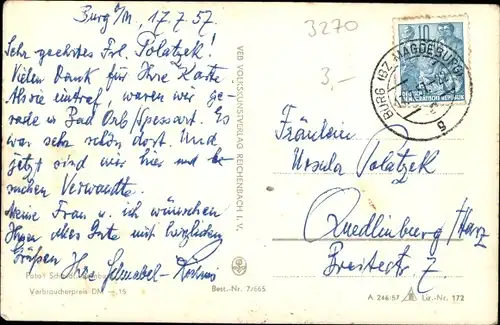 Burg b/M, 17.7.57.
Sehr geehrtes Frl. Polatzek!
Vielen Dank für Ihre Karte.
Als sie eintraf, waren wir ge-
rade in Bad Orb/Spessart. Es
war sehr schön dort. Und
jetzt sind wir hier und be-
suchen Verwandte.
Meine Frau u. ich wünschen
Ihnen alles Gute mit herzlichen
Grüßen Ihre Schnabel-
Foto:
Verbraucherpreis DM —,15
Best.-Nr. 7/665
VEB VOLKSKUNSTVERLAG REICHENBACH I. V.
3270
3,-
10
DEMOKRATISCHE REPUBLIK
BURG (BZ. MAGDEBURG)
Fräulein
Ursula Polatzek
Quedlinburg/Harz
Breitestr. 7.
A 246/57
Liz.-Nr. 172